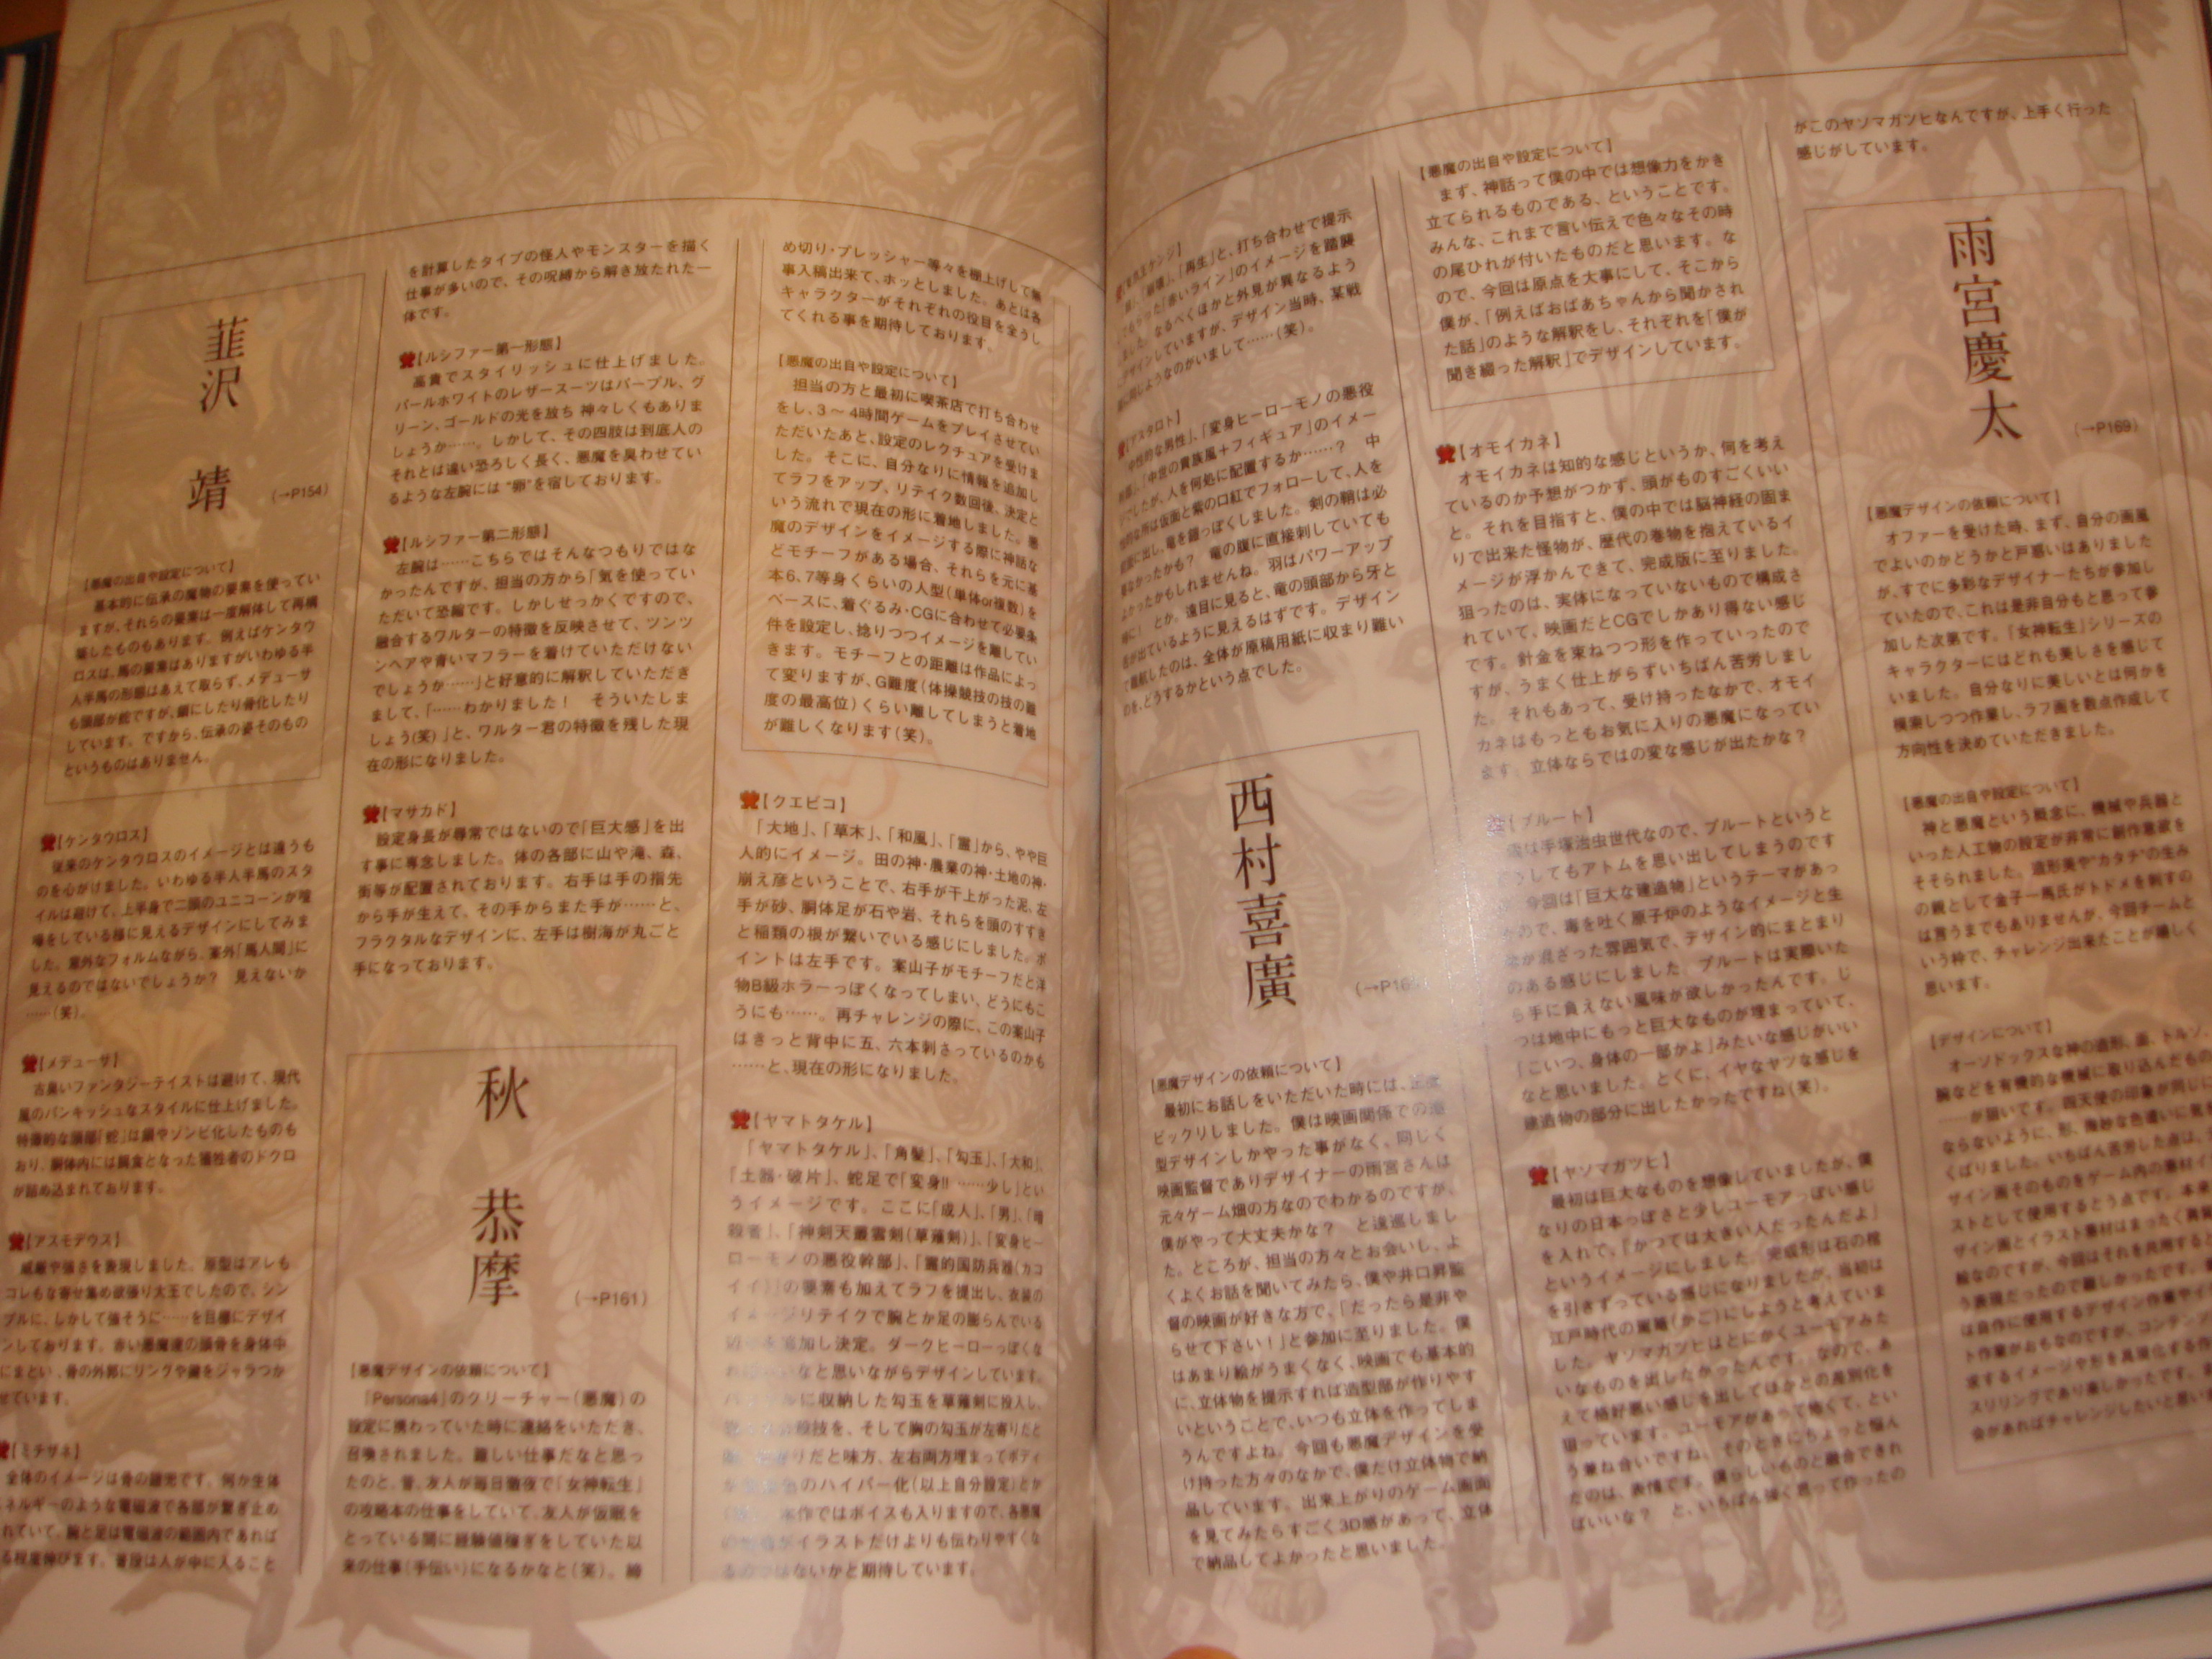 韮沢
靖
(→P154)
【悪魔の出自や設定について】
基本的に伝承の魔物の要素を使ってい
ますが、それらの要素は一度解体して再構
築したものもあります。例えばケンタウ
ロスは、馬の要素はありますがいわゆる半
人半馬の形態はあえて取らず、メデューサ
も頭部が蛇ですが、鎖にしたり骨化したり
しています。ですから、伝承の姿そのもの
というものはありません。
【ケンタウロス】
従来のケンタウロスのイメージとは違うも
のを心がけました。いわゆる半人半馬のスタ
イルは避けて、上半身で二頭のユニコーンが喧
嘩をしている様に見えるデザインにしてみま
した。意外なフォルムながら、案外「馬人間」に
見えるのではないでしょうか? 見えないか
……(笑)。
【メデューサ】
古臭いファンタジーテイストは避けて、現代
風のパンキッシュなスタイルに仕上げました。
特徴的な頭部「蛇」は鎖やゾンビ化したものも
おり、胴体内には餌食となった犠牲者のドクロ
が詰め込まれております。
【アスモデウス】
威厳や強さを表現しました。原型はアレも
コレもな寄せ集め欲張り大王でしたので、シン
プルに、しかして強そうに……を目標にデザイ
ンしております。赤い悪魔達の頭骨を身体中
にまとい、骨の外郭にリングや鎖をジャラつか
せています。
【ミチザネ】
全体のイメージは骨の
ネルギーのような電磁波で各部が繋ぎ止め
れていて、腕と足は電磁波の範囲内であれば
る程度伸びます。普段は人が中に入ること
を計算したタイプの怪人やモンスターを描く
仕事が多いので、その呪縛から解き放たれた一
体です。
【ルシファー第一形態】
高貴でスタイリッシュに仕上げました。
パールホワイトのレザースーツはパープル、グ
リーン、ゴールドの光を放ち 神々しくもありま
しょうか……。しかして、その四肢は到底人の
それとは違い恐ろしく長く、悪魔を臭わせてい
るような左腕には“卵”を宿しております。
【ルシファー第二形態】
左腕は……こちらではそんなつもりではな
かったんですが、担当の方から「気を使ってい
ただいて恐縮です。しかしせっかくですので、
融合するワルターの特徴を反映させて、ツンツ
ンヘアや青いマフラーを着けていただけない
でしょうか……」と好意的に解釈していただき
まして、「……わかりました! そういたしま
しょう(笑)」と、ワルター君の特徴を残した現
在の形になりました。
【マサカド】
設定身長が尋常ではないので「巨大感」を出
す事に専念しました。体の各部に山や滝、森、
街等が配置されております。右手は手の指先
から手が生えて、その手からまた手が……と、
フラクタルなデザインに、左手は樹海が丸ごと
手になっております。
秋
恭
摩
(→P161)
【悪魔デザインの依頼について】
『Persona4』のクリーチャー(悪魔)の
設定に携わっていた時に連絡をいただき、
召喚されました。難しい仕事だなと思っ
たのと、昔、友人が毎日徹夜で『女神転生』
の攻略本の仕事をしていて、友人が仮眠を
とっている間に経験値稼ぎをしていた以
来の仕事(手伝い)になるかなと(笑)。締
め切り・プレッシャー等々を棚上げして無
事入稿出来て、ホッとしました。あとは各
キャラクターがそれぞれの役目を全うし
てくれる事を期待しております。
【悪魔の出自や設定について】
担当の方と最初に喫茶店で打ち合わせ
をし、3〜4時間ゲームをプレイさせてい
ただいたあと、設定のレクチュアを受けま
した。そこに、自分なりに情報を追加し
てラフをアップ、リテイク数回後、決定と
いう流れで現在の形に着地しました。悪
魔のデザインをイメージする際に神話な
どモチーフがある場合、それらを元に基
本6、7等身くらいの人型(単体or複数)を
ベースに、着ぐるみ・CGに合わせて必要条
件を設定し、捻りつつイメージを離してい
きます。モチーフとの距離は作品によっ
て変りますが、G難度(体操競技の技の難
度の最高位)くらい離してしまうと着地
が難しくなります(笑)。
【クエビコ】
「大地」、「草木」、「和風」、「霊」から、やや巨
人的にイメージ。田の神・農業の神・土地の神・
崩え彦ということで、右手が干上がった泥、左
手が砂、胴体足が石や岩、それらを頭のすすき
と稲類の根が繋いでいる感じにしました。ポ
イントは左手です。案山子がモチーフだと洋
物B級ホラーっぽくなってしまい、どうにもこ
うにも……。再チャレンジの際に、この案山子
はきっと背中に五、六本刺さっているのかも
……と、現在の形になりました。
【ヤマトタケル】
「ヤマトタケル」、「角髪」、「勾玉」、「大和」、
「土器・破片」、蛇足で「変身!! ……少し」とい
うイメージです。ここに「成人」、「男」、「暗
殺者」、「神剣天叢雲剣(草薙剣)」、「変身ヒー
ローモノの悪役幹部」、「霊的国防兵器(カコ
イイ)」の要素も加えてラフを提出し、衣装の
イメージリテイクで腕とか足の膨らんでいる
追加し決定。ダークヒーローっぽくな
なと思いながらデザインしています。
に収納した勾玉を草薙剣に投入し、
技を、そして胸の勾玉が左寄りだと
りだと味方、左右両方埋まってボディ
のハイパー化(以上自分設定)とか
作ではボイスも入りますので、各悪魔
イラストだけよりも伝わりやすくな
ないかと期待しています。
「再生」と、打ち合わせで提示
「赤いライン」のイメージを踏襲
なるべくほかと外見が異なるよう
デザインしていますが、デザイン当時、某戦
に同じようなのがいまして……(笑)。
【アスタロト】
「中性的な男性」、「変身ヒーローモノの悪役
「中世の貴族風+フィギュア」のイメー
でしたが、人を何処に配置するか……? 中
性的な所は仮面と紫の口紅でフォローして、人を
前面に出し、竜を鎧っぽくしました。剣の鞘は必
要なかったかも? 竜の腹に直接刺していても
よかったかもしれませんね。羽はパワーアップ
時に! とか。遠目に見ると、竜の頭部から牙と
舌が出ているように見えるはずです。デザイン
で難航したのは、全体が原稿用紙に収まり難い
のを、どうするかという点でした。
西村喜廣
(→P16
【悪魔デザインの依頼について】
最初にお話しをいただいた時には、正直
ビックリしました。僕は映画関係での造
型デザインしかやった事がなく、同じく
映画監督でありデザイナーの雨宮さんは
元々ゲーム畑の方なのでわかるのですが、
僕がやって大丈夫かな? と逡巡しまし
た。ところが、担当の方々とお会いし、よ
くよくお話を聞いてみたら、僕や井口昇監
督の映画が好きな方で、「だったら是非や
らせて下さい!」と参加に至りました。僕
はあまり絵がうまくなく、映画でも基本的
に、立体物を提示すれば造型部が作りやす
いということで、いつも立体を作ってしま
うんですよね。今回も悪魔デザインを受
け持った方々のなかで、僕だけ立体物で納
品しています。出来上がりのゲーム画面
を見てみたらすごく3D感があって、立体
で納品してよかったと思いました。
【悪魔の出自や設定について】
まず、神話って僕の中では想像力をかき
立てられるものである、ということです。
みんな、これまで言い伝えで色々なその時
の尾ひれが付いたものだと思います。な
ので、今回は原点を大事にして、そこから
僕が、「例えばおばあちゃんから聞かされ
た話」のような解釈をし、それぞれを「僕が
聞き綴った解釈」でデザインしています。
【オモイカネ】
オモイカネは知的な感じというか、何を考え
ているのか予想がつかず、頭がものすごくいい
と。それを目指すと、僕の中では脳神経の固ま
りで出来た怪物が、歴代の巻物を抱えているイ
メージが浮かんできて、完成版に至りました。
狙ったのは、実体になっていないもので構成さ
れていて、映画だとCGでしかあり得ない感じ
です。針金を束ねつつ形を作っていったので
すが、うまく仕上がらずいちばん苦労しまし
た。それもあって、受け持ったなかで、オモイ
カネはもっともお気に入りの悪魔になってい
ます。立体ならではの変な感じが出たかな?
【プルート】
僕は手塚治虫世代なので、プルートというと
どうしてもアトムを思い出してしまうのです
今回は「巨大な建造物」というテーマがあっ
ので、毒を吐く原子炉のようなイメージと生
が混ざった雰囲気で、デザイン的にまとまり
のある感じにしました。プルートは実際いた
ら手に負えない風味が欲しかったんです。じ
つは地中にもっと巨大なものが埋まっていて、
「こいつ、身体の一部かよ」みたいな感じがいい
なと思いました。とくに、イヤなヤツな感じを
建造物の部分に出したかったですね(笑)。
【ヤソマガツヒ】
最初は巨大なものを想像していましたが、僕
なりの日本っぽさと少しユーモアっぽい感じ
を入れて、「かつては大きい人だったんだよ」
というイメージにしました。完成形は石の棺
を引きずっている感じになりましたが、当初は
江戸時代の駕籠(かご)にしようと考えていま
した。ヤソマガツヒはとにかくユーモアみた
いなものを出したかったんです。なので、あ
えて格好悪い感じを出してほかとの差別化を
狙っています。ユーモアがあって怖くて、とい
う兼ね合いですね。そのときにちょっと悩ん
だのは、表情です。僕らしいものと融合できれ
ばいいな? と、いちばん強く思って作ったの
がこのヤソマガツヒなんですが、上手く行った
感じがしています。
雨宮慶太
(→P169)
【悪魔デザインの依頼について】
オファーを受けた時、まず、自分の画風
でよいのかどうかと戸惑いはありました
が、すでに多彩なデザイナーたちが参加し
ていたので、これは是非自分もと思って参
加した次第です。『女神転生』シリーズの
キャラクターにはどれも美しさを感じて
いました。自分なりに美しいとは何かを
模索しつつ作業し、ラフ画を数点作成して
方向性を決めていただきました。
【悪魔の出自や設定について】
神と悪魔という概念に、機械や兵器と
いった人工物の設定が非常に創作意欲を
そそられました。造形美や“カタチ”の生み
の親として金子一馬氏がトドメを刺すの
は言うまでもありませんが、今回チームと
いう枠で、チャレンジ出来たことが嬉しく
思います。
【デザインについて】
オーソドックスな神の造形、羽、トルソ、
腕などを有機的な機械に取り込んだもの
……が狙いです。四天使の印象が同じに
ならないように、形、微妙な色違いに気を
くばりました。いちばん苦労した点は、デ
ザイン画そのものをゲーム内の素材イラ
ストとして使用するとう点です。本来、デ
ザイン画とイラスト素材はまったく異質
なのですが、今回はそれを共用すると
う表現だったので難しかったです。
は自作に使用するデザイン作業やイ
ト作業がおもなのですが、コンテンツ
求するイメージや形を具現化する作
スリリングであり楽しかったです。
会があればチャレンジしたいと思い